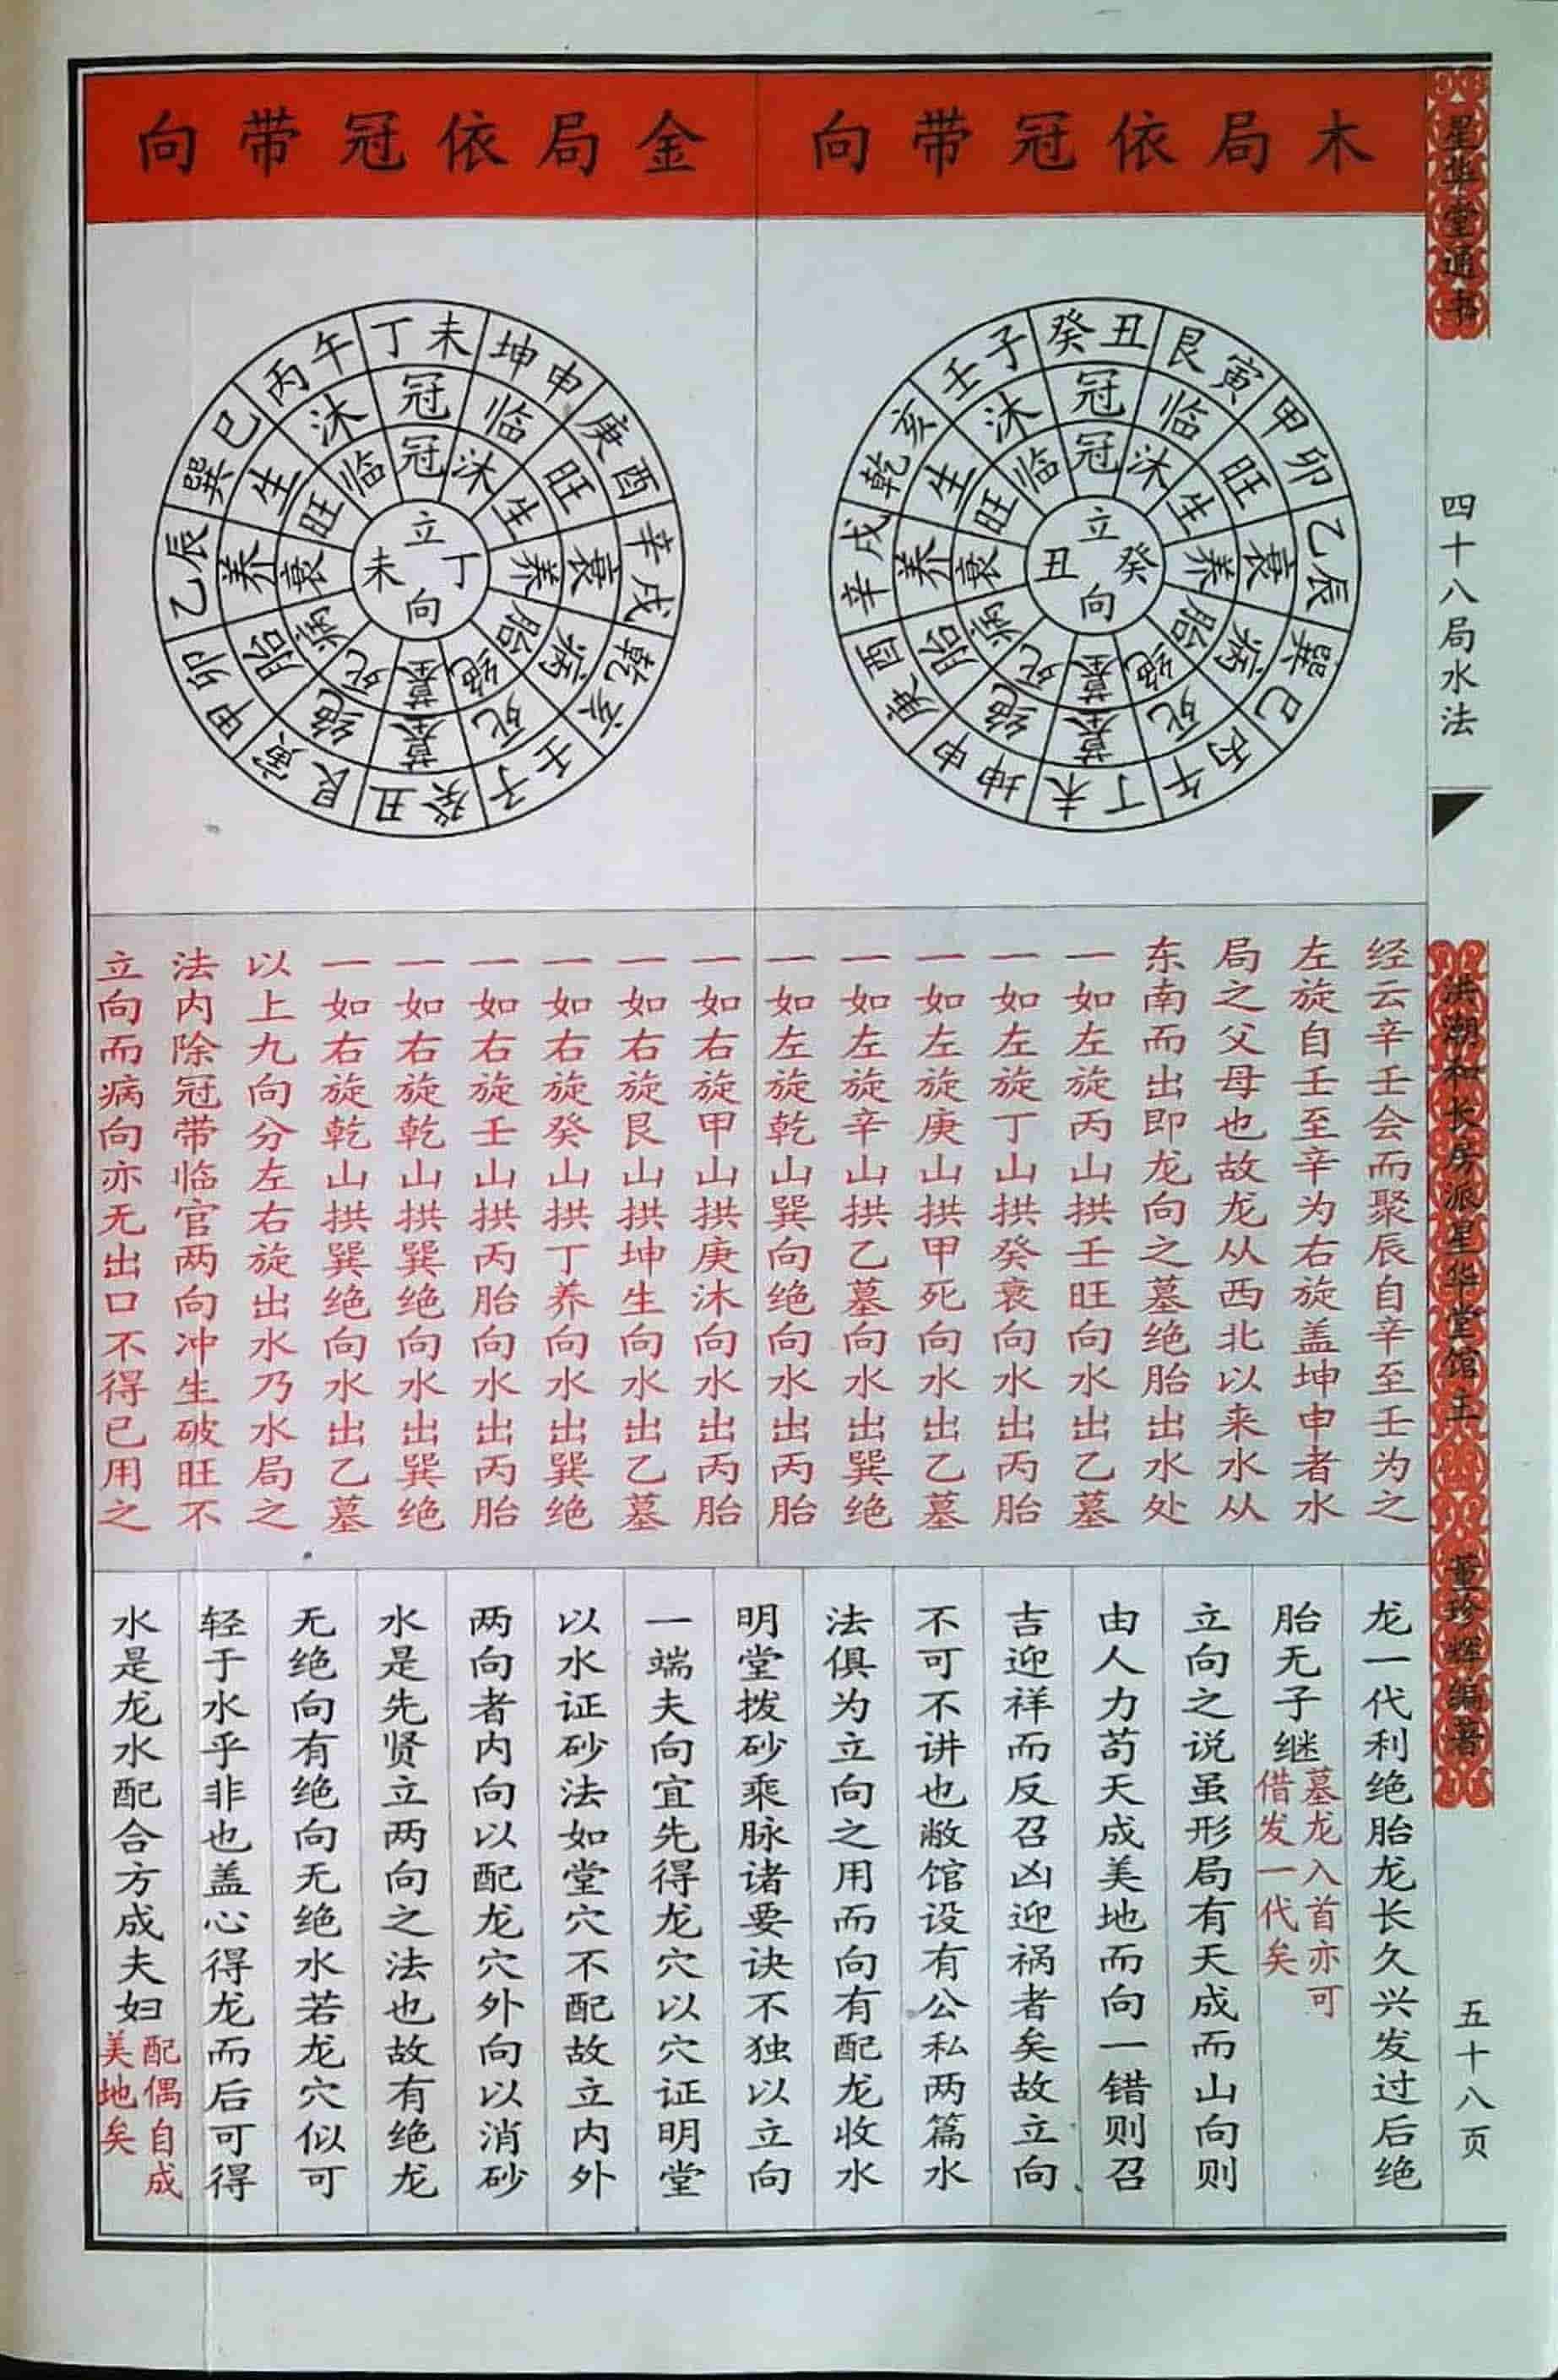 星华堂通书
四十八局水法
洪潮和长房派星华堂馆主
董珍辉编著
五十八页
木局依冠带向
金局依冠带向
立癸向丑
冠沐生养胎绝墓死病衰旺临
冠临旺衰病死墓绝胎养生沐
癸丑艮寅甲卯乙辰巽巳丙午丁未坤申庚酉辛戌乾亥壬子
立丁向未
冠沐生养胎绝墓死病衰旺临
冠临旺衰病死墓绝胎养生沐
丁未坤申庚酉辛戌乾亥壬子癸丑艮寅甲卯乙辰巽巳丙午
经云辛壬会而聚辰自辛至壬为之
左旋自壬至辛为右旋盖坤申者水
局之父母也故龙从西北以来水从
东南而出即龙向之墓绝胎出水处
一如左旋丙山拱壬旺向水出乙墓
一如左旋丁山拱癸衰向水出丙胎
一如左旋庚山拱甲死向水出乙墓
一如左旋辛山拱乙墓向水出巽绝
一如左旋乾山巽向绝向水出丙胎
一如右旋甲山拱庚沐向水出丙胎
一如右旋艮山拱坤生向水出乙墓
一如右旋癸山拱丁养向水出巽绝
一如右旋壬山拱丙胎向水出丙胎
一如右旋乾山拱巽绝向水出巽绝
一如右旋乾山拱巽绝向水出乙墓
以上九向分左右旋出水乃水局之
法内除冠带临官两向冲生破旺不
立向而病向亦无出口不得已用之
龙一代利绝胎龙长久兴发过后绝
胎无子继墓龙入首亦可借发一代矣
立向之说虽形局有天成而山向则
由人力苟天成美地而向一错则召
吉迎祥而反召凶迎祸者矣故立向
不可不讲也敝馆设有公私两篇水
法俱为立向之用而向有配龙收水
明堂拨砂乘脉诸要诀不独以立向
一端夫向宜先得龙穴以穴证明堂
以水证砂法如堂穴不配故立内外
两向者内向以配龙穴外向以消砂
水是先贤立两向之法也故有绝龙
无绝向有绝向无绝水若龙穴似可
轻于水乎非也盖心得龙而后可得
水是龙水配合方成夫妇配偶自成美地矣